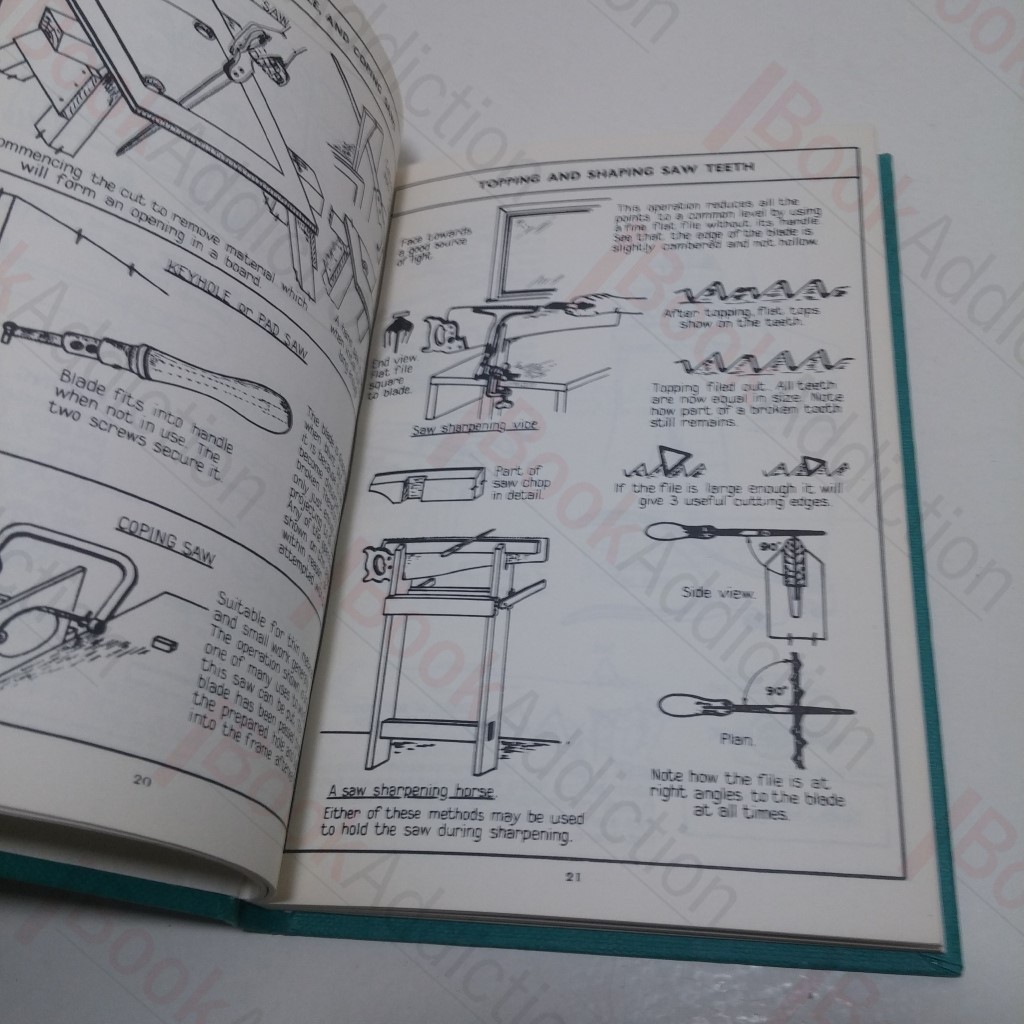 SAW
CE, AND COPING
ommencing the cut to remove material which
will form an opening in a board.
KEYHOLE or PAD SAW
Blade fits into handle
when not in use. The
two screws secure it.
The blade
when
it is
become
broken
only just
projecting
Any of the
shown on
within reason
attempted
COPING SAW
Suitable for thin
and small work
The operation shown
one of many uses
this saw can be put
blade has been passed
the prepared hole and
into the frame
20
TOPPING AND SHAPING SAW TEETH
Face towards
a good source
of light.
This operation reduces all the
points to a common level by using
a fine flat file without its handle.
See that the edge of the blade is
slightly cambered and not hollow.
End view
Flat file
square
to blade.
After topping, flat tops
show on the teeth.
Topping filed out. All teeth
are now equal in size. Note
how part of a broken tooth
still remains.
Saw sharpening vice
Part of
saw chop
in detail.
If the file is large enough it will
give 3 useful cutting edges.
90°
Side view.
90°
Plan.
Note how the file is at
right angles to the blade
at all times.
A saw sharpening horse.
Either of these methods may be used
to hold the saw during sharpening.
21
BookAddiction